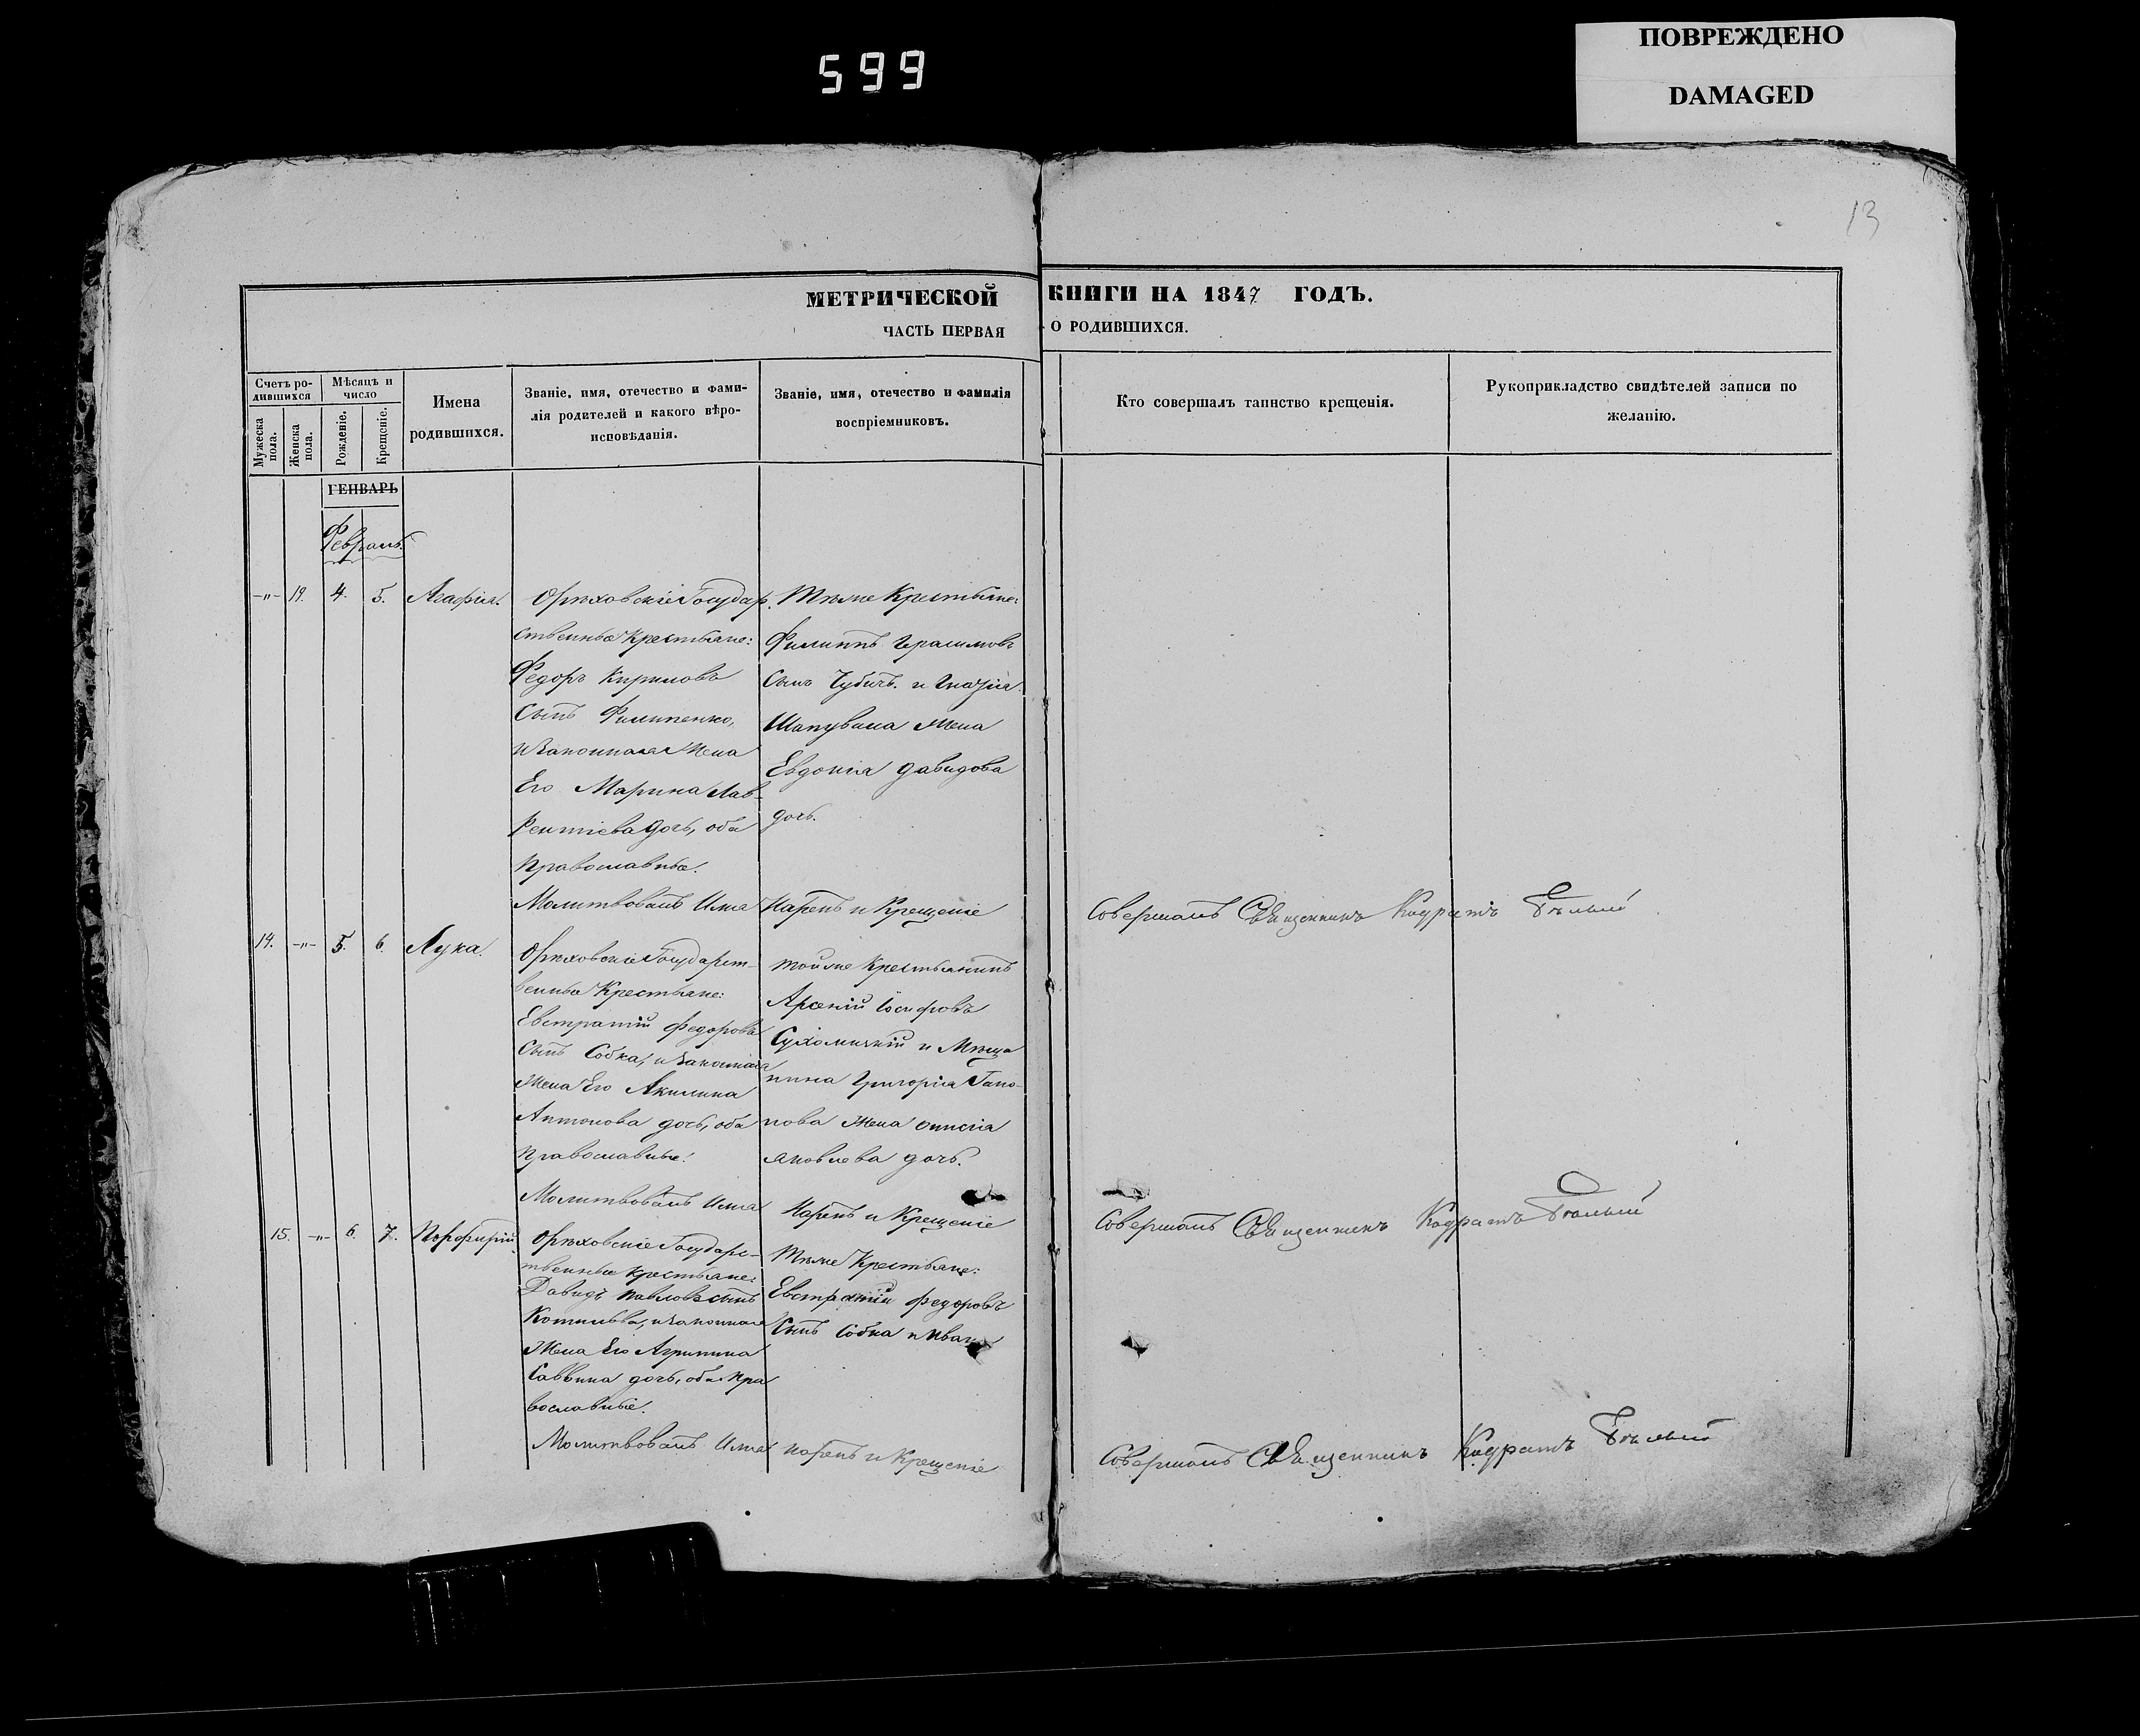 ПОВРЕЖДЕНО
DAMAGED
599
13
МЕТРИЧЕСКОЙ КНИГИ НА 1847 ГОДЪ.
ЧАСТЬ ПЕРВАЯ О РОДИВШИХСЯ.
Счетъ ро-
дившихся
Мужеска
пола.
Женска
пола.
Мѣсяцъ и
число
Рожденіе.
Крещеніе.
Имена
родившихся.
Званіе, имя, отечество и фами-
лія родителей и какого вѣро-
исповѣданія.
Званіе, имя, отечество и фамилія
воспріемниковъ.
Кто совершалъ таинство крещенія.
Рукоприкладство свидѣтелей записи по
желанію.
ГЕНВАРЬ
Февраль.
-"- 19. 4. 5. Агафія.
Орѣховскіе Государ.
ственные Крестьяне:
Федоръ Кириловъ
Сынъ Филипенко,
и Законная Жена
Его Марина Лав-
рентіева дочь, оба
Православные.
Молитвовалъ Имя
Тѣже Крестьяне:
Филиппъ Герасимовъ
Сынъ Чубичъ. и
Шаповала Жена
Евдокія Давидова
дочь.
Нарекъ и Крещеніе
Совершалъ Священникъ Кодратъ Бѣлый
14. -"- 5. 6. Лука.
Орѣховскіе Государст-
венные Крестьяне:
Евстратій Федоровъ
Сынъ Собка, и Законная
Жена Его Акилина
Антонова дочь, оба
Православные.
Молитвовалъ Имя
тойже Крестьянинъ
Арсеній Іосифовъ
и Мѣща
нина Григорія Гапо-
нова Жена
Яковлева дочь.
Нарекъ и Крещеніе
Совершалъ Священникъ Кодратъ Бѣлый
15. -"- 6. 7. Порфирій
Орѣховскіе Государс-
твенные Крестьяне:
Давидъ Павловъ сынъ
и Законная
Жена Его Агрипина
Саввина дочь, оба Пра
вославные.
Молитвовалъ Имя
Тѣже Крестьяне:
Евстратій Федоровъ
Сынъ Собка и
нарекъ и Крещеніе
Совершалъ Священникъ Кодратъ Бѣлый